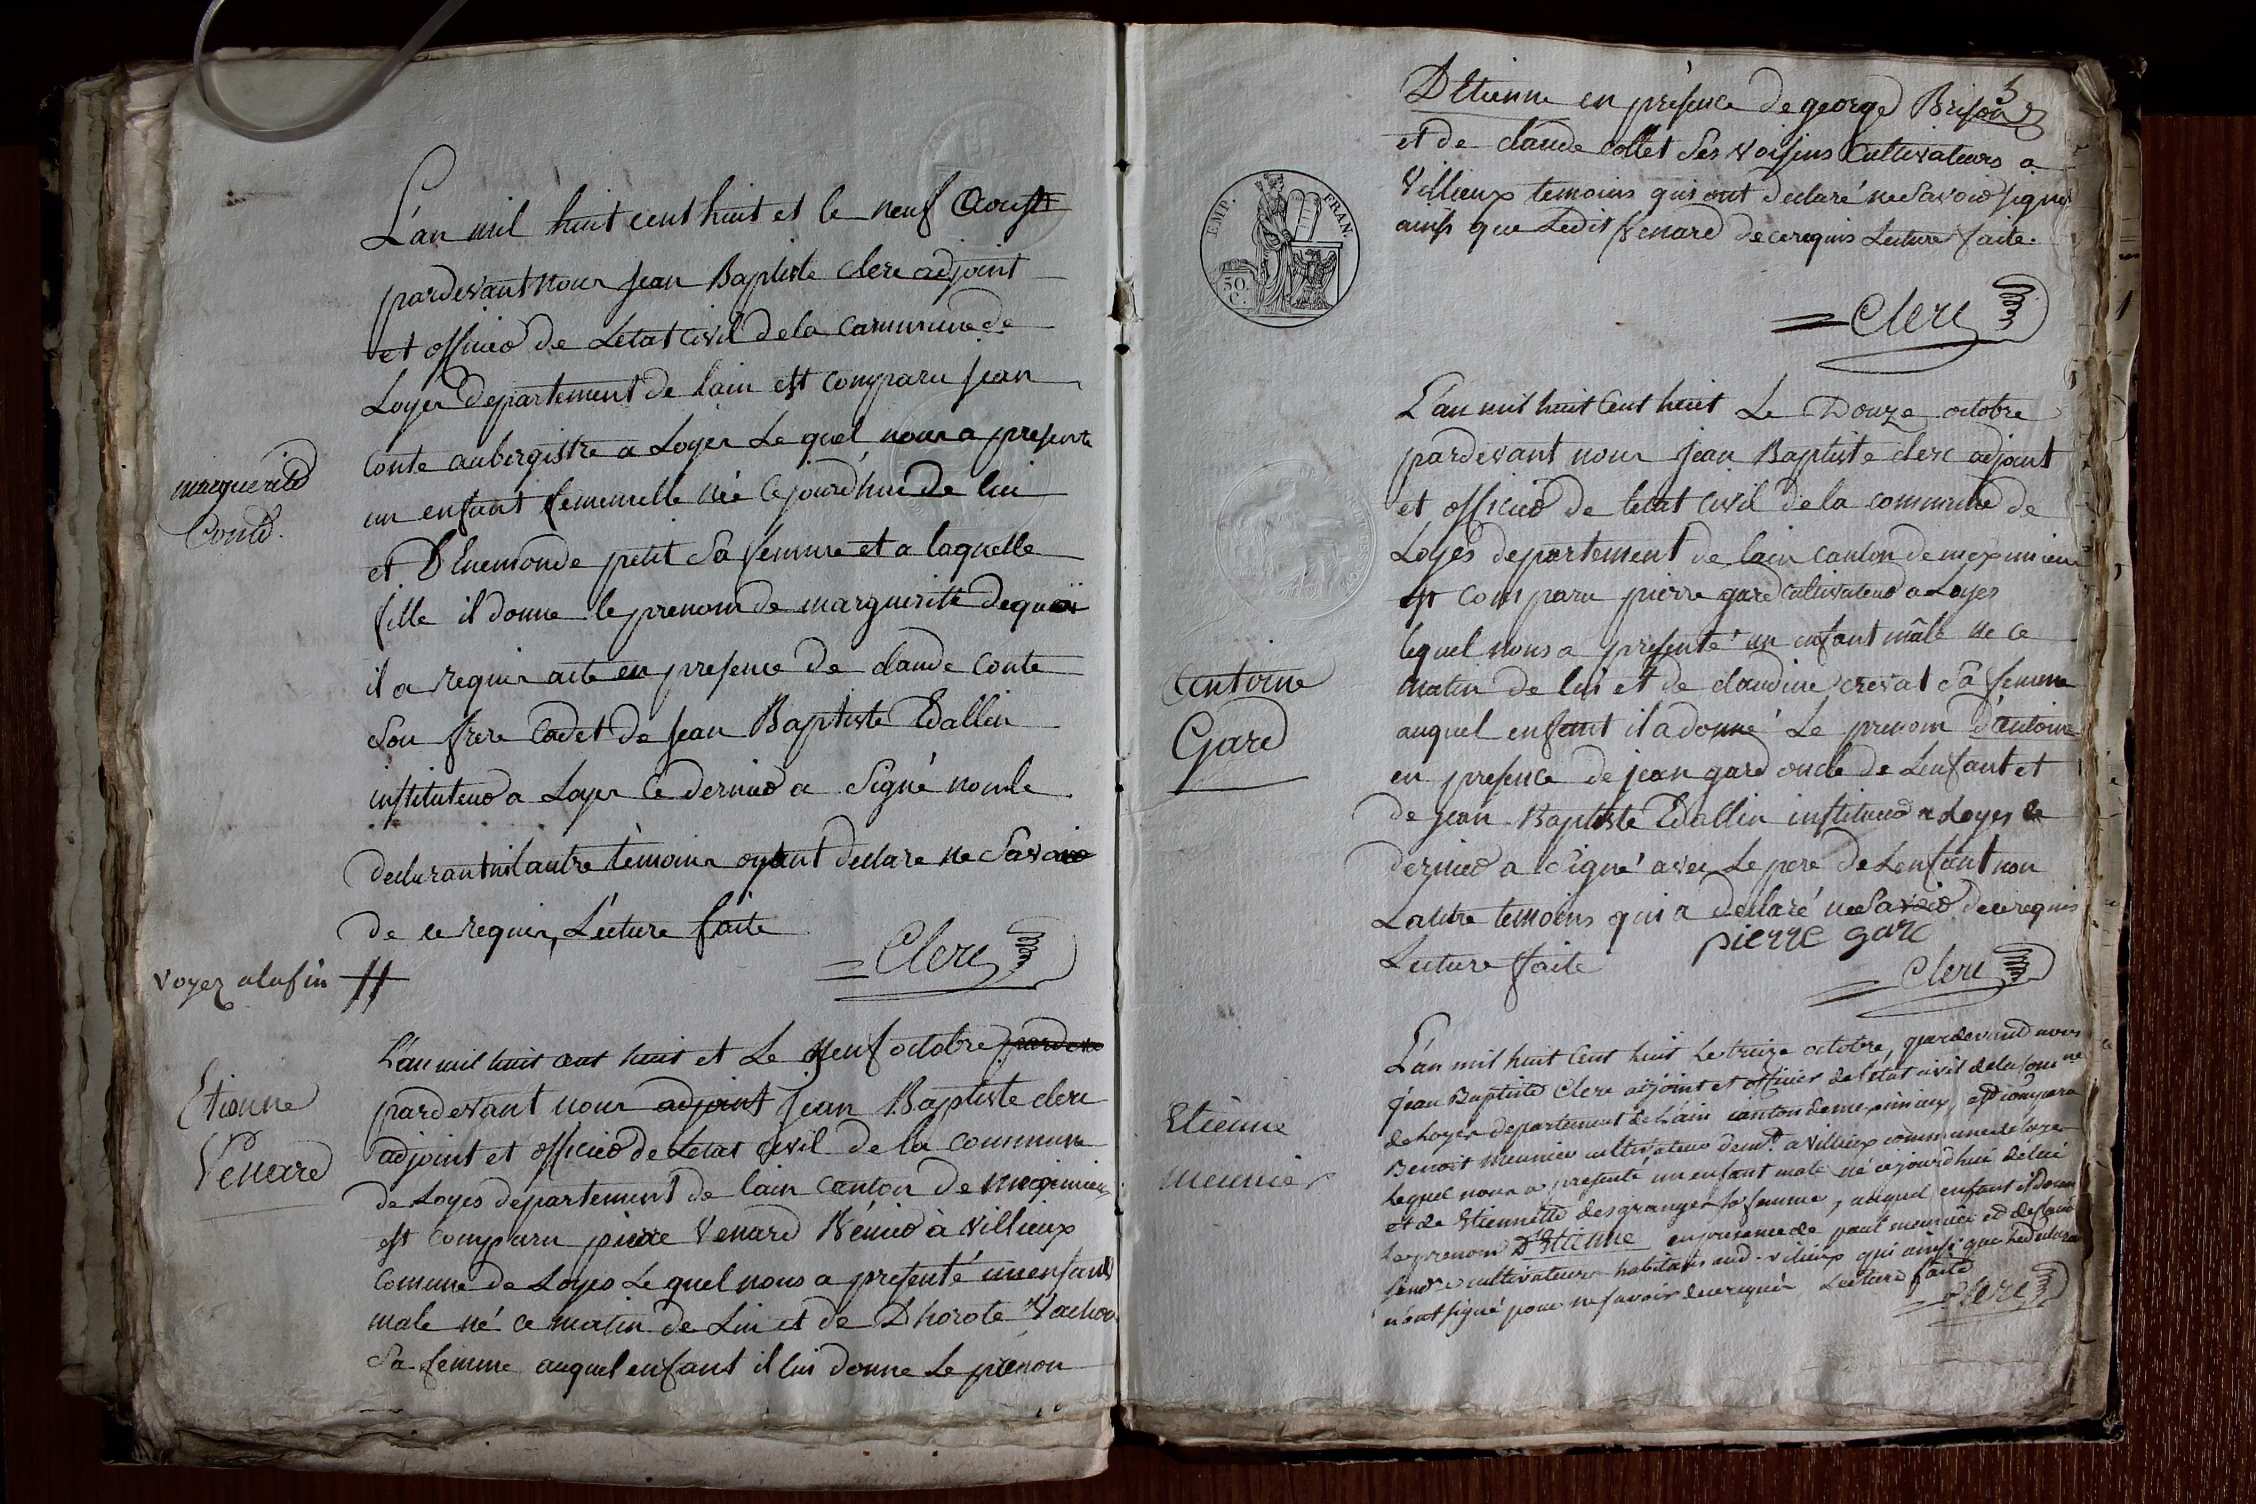 L'an mil huit cent huit et le neuf Aoust
pardevant nous Jean Baptiste clerc adjoint
et officier de Letat civil de la Commune de
Loyes departement de lain est comparu Jean
Conte aubergistre a Loyes Le quel nous a presenté
un enfant femenelle née ce jourdhui de lui
et D'Enemonde petit sa femme et a laquelle
fille il donne le prenom de marguerite dequoi
il a requis acte en presence de claude Conte
son frere cadet de Jean Baptiste Edallin
instituteur a Loyes ce dernier a signé non le
declarant ni lautre temoins ayant declare ne savoir
de ce requis, Lecture faite
Clerc
marguerite
Conte.
voyez a la fin
L'an mil huit cent huit et Le neuf octobre
pardevant nous adjoint Jean Baptiste clerc
adjoint et officier de Letat civil de la commune
de Loyes departement de lain canton de meximieu
est comparu pierre Venard à villieux
Comune de Loyes Le quel nous a presenté un enfant
male né ce matin de Lui et de Dhorote Vachon
sa femme auquel enfant il lui donne Le prenon
Etienne
Venard
5
D'Etienne en présence de george Brison
et de claude collet ses voisins Cultivateurs a
Villieux temoins qui ont declaré ne savoir signer
ainsi que Ledit Venard de ce requis Lecture faite.
Clerc
EMP. FRAN.
50. C.
L'an mil huit Cent huit Le Douze octobre
pardevant nous jean Baptiste clerc adjoint
et officier de letat civil de la commune de
Loyes departement de lain canton de meximieu
est comparu pierre gard cultivateur a Loyes
lequel nous a presenté un enfant mâle né ce
matin de lui et de claudine crevat sa femme
auquel enfant il a donné Le prenom d'antoine
en presence de jean gard oncle de Lenfant et
de jean Baptiste Edallin instituteur a Loyes ce
dernier a signé avec Le pere de Lenfant non
Lautre temoins qui a declaré ne savoir de ce requis
Lecture faite
pierre gard
Clerc
Antoine
Gard
L'an mil huit Cent huit Le treize octobre, pardevant nous
Jean Baptiste Clerc adjoint et officier de letat civil de la comme
de Loyes departement de Lain canton de meximieux, est comparu
Benoit meunier cultivateur demt. a Villieux commune de loyes
Lequel nous a presenté un enfant male né ce jourdhui de lui
et de Etiennette desgranges sa femme, auquel enfant il donne
Le prenom D'Etienne en presence de paul meunier et de
cultivateurs habitans aud. vilieux qui ainsi que Le declarant
n'ont signé pour ne savoir de ce requis Lecture faite
Clerc
Etienne
meunier